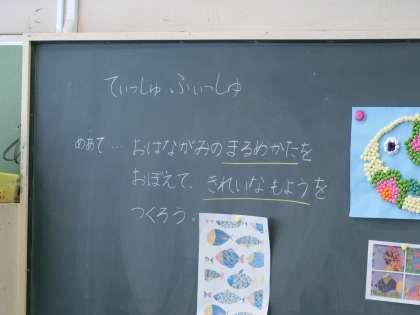 てぃっしゅ、ふぃっしゅ
めあて… おはながみのまるめかたを
おぼえて、きれいなもようを
つくろう。